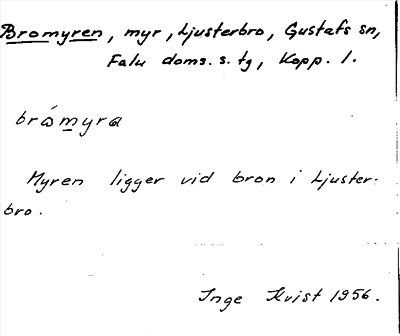 Bromyren, myr, Ljusterbro, Gustafs sn,
Falu doms. s. tg, Kopp. l.
bråmyra
Myren ligger vid bron i Ljuster-
bro.
Inge Kvist 1956.